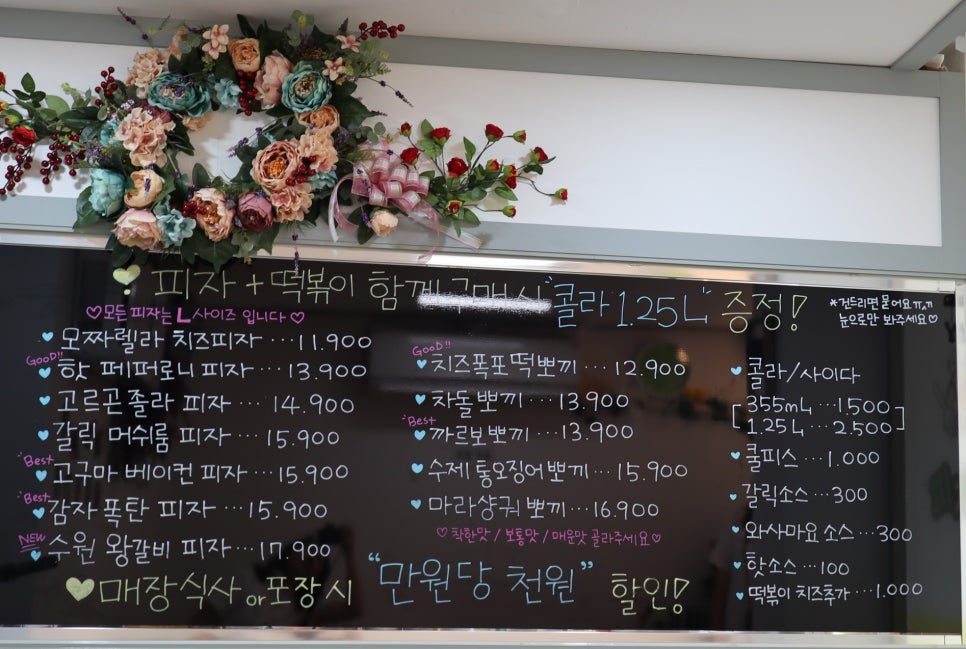 피자 + 떡볶이 함께구매시 "콜라 1.25L" 증정!
*건드리면 묻어요ㅠㅠ
눈으로만 봐주세요♡
♡모든 피자는 L사이즈 입니다♡
모짜렐라 치즈피자 ···11.900
GooD!!
핫 페퍼로니 피자 ···13.900
고르곤졸라 피자 ··· 14.900
갈릭 머쉬룸 피자 ··· 15.900
Best
고구마 베이컨 피자 ···15.900
Best
감자 폭탄 피자 ···15.900
NEW
수원 왕갈비 피자···17.900
GooD!!
치즈폭포떡뽀끼 ··· 12.900
차돌뽀끼 ···13.900
Best
까르보뽀끼 ···13.900
수제 통오징어뽀끼 ···15.900
마라샹궈 뽀끼 ···16.900
♡착한맛 / 보통맛 / 매운맛 골라주세요♡
콜라/사이다
[355mL ···1.500
1.25L ··· 2.500]
쿨피스 ···1.000
갈릭소스 ···300
와사마요 소스 ···300
핫소스 ···100
떡볶이 치즈추가 ···1.000
매장식사 or 포장 시 "만원당 천원" 할인!